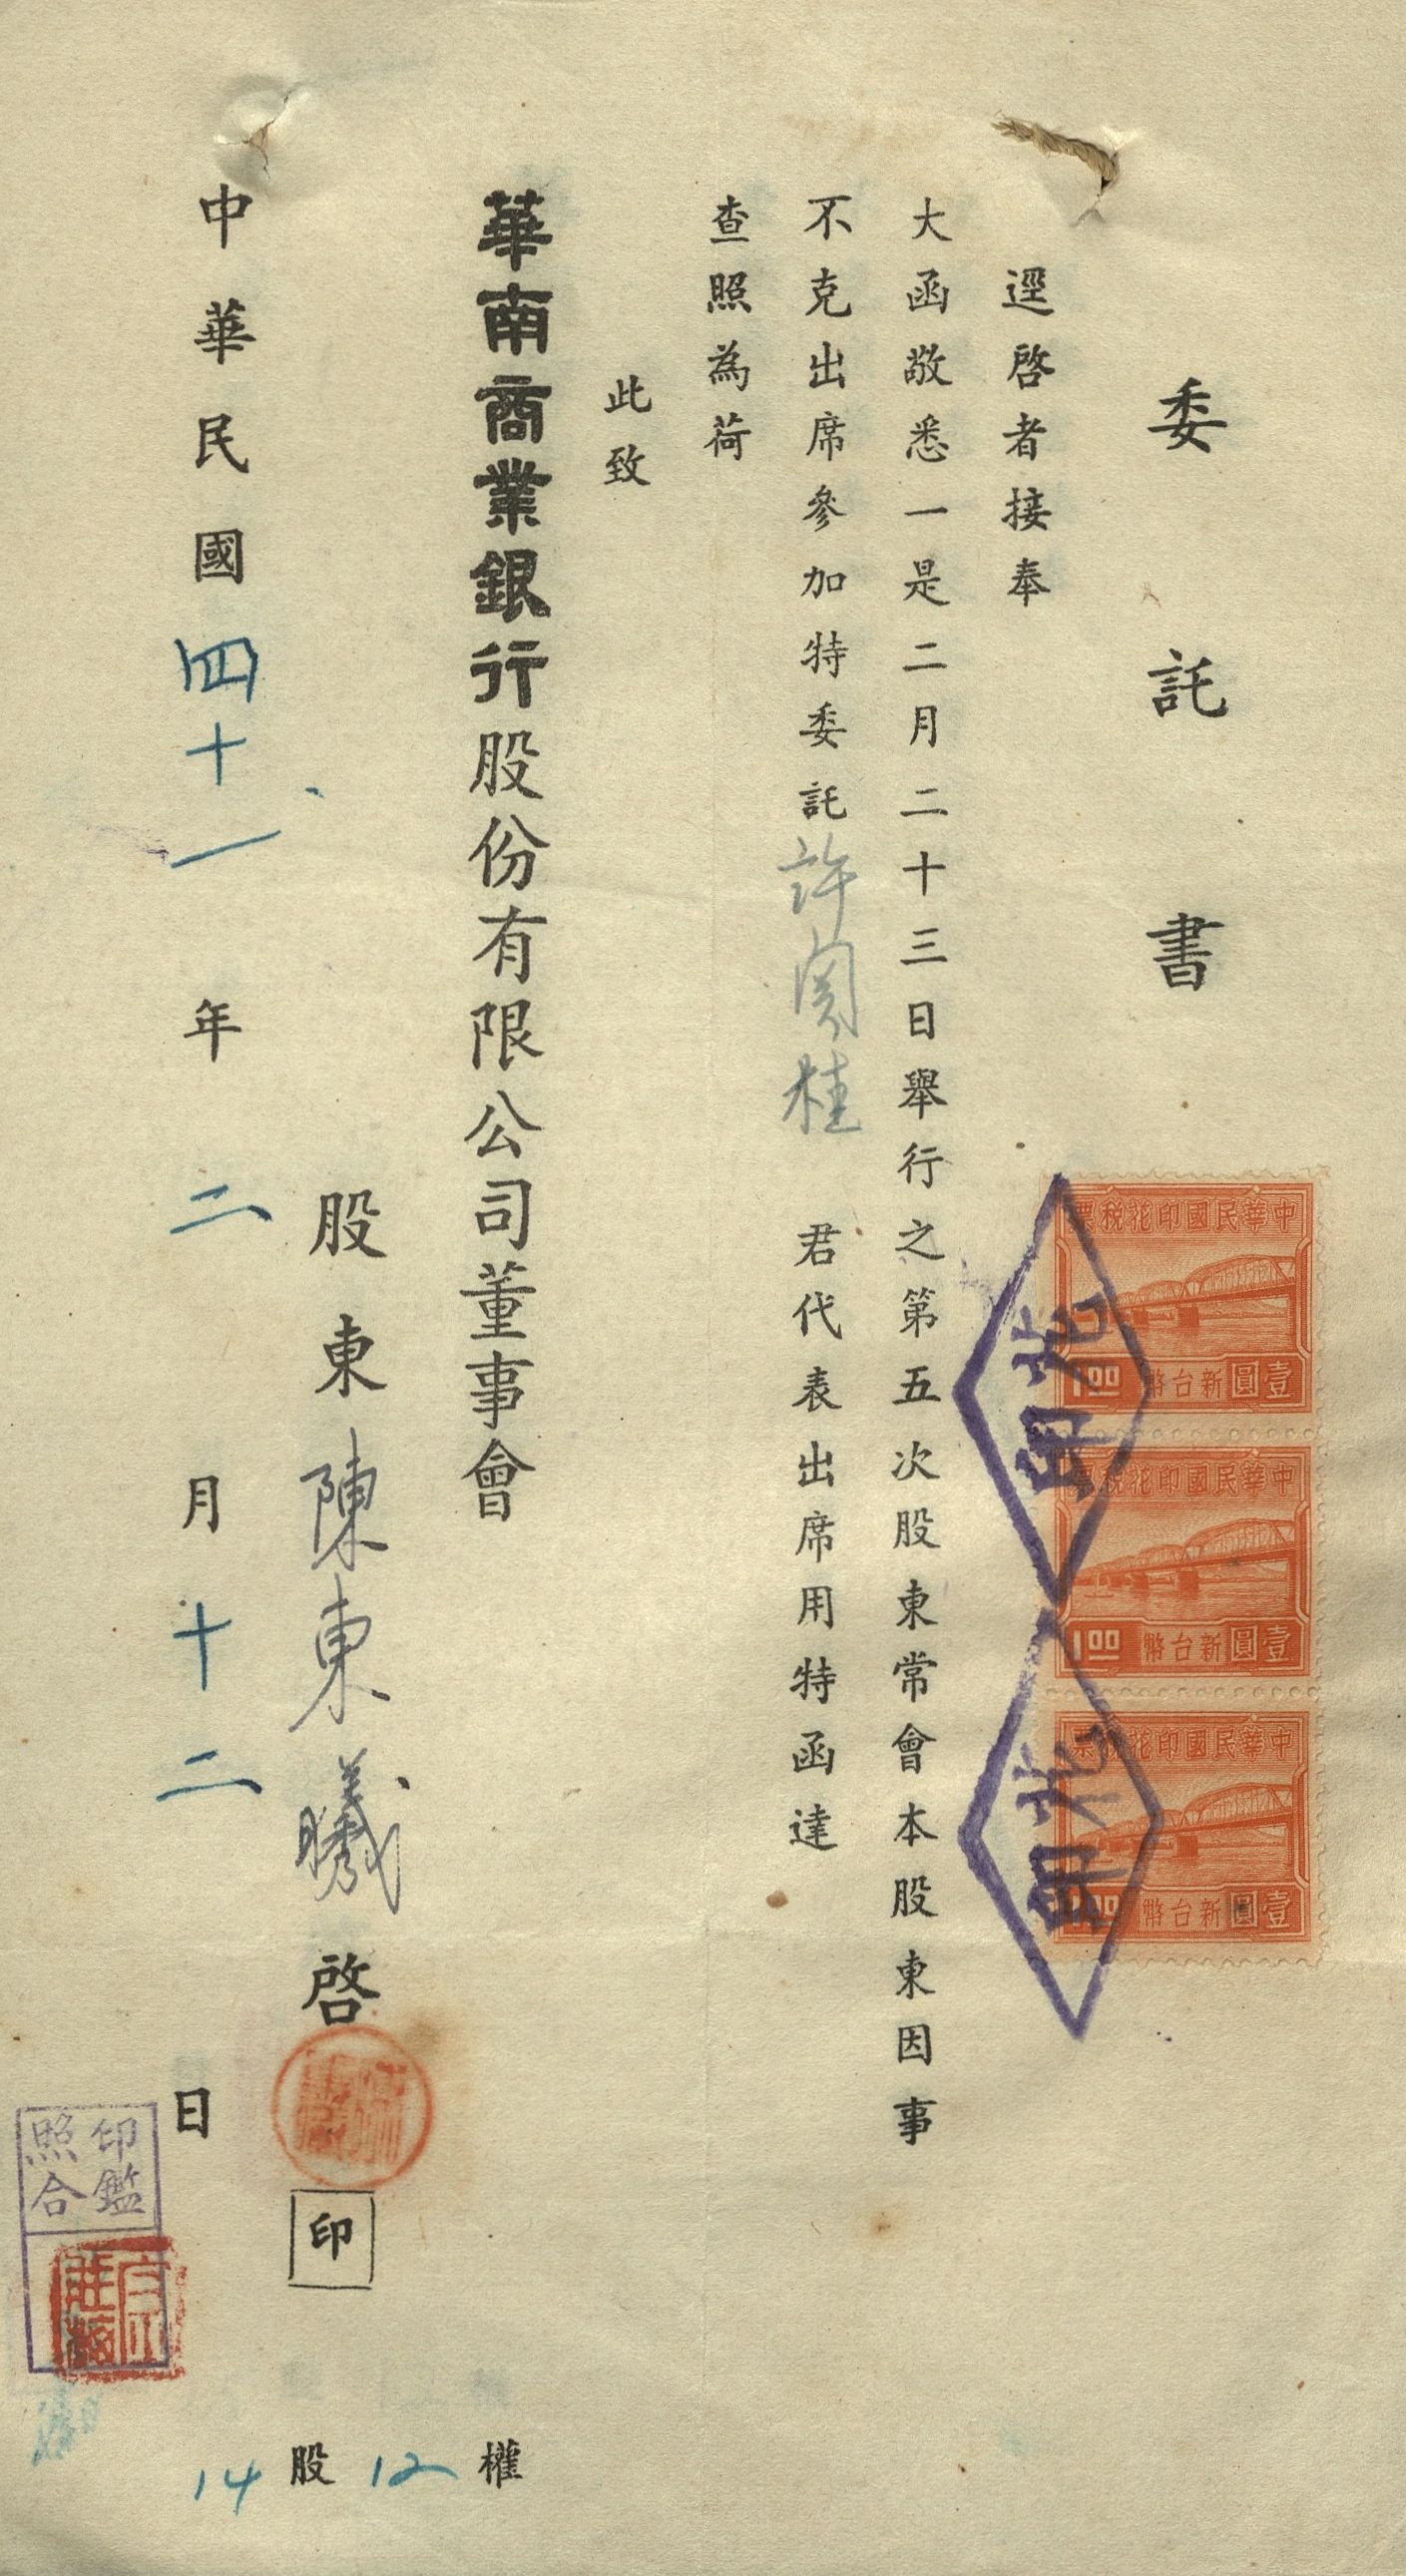 委託書
逕啓者接奉
大函敬悉一是二月二十三日舉行之第五次股東常會本股東因事
不克出席參加特委託許閔桂君代表出席用特函達
查照為荷
此致
華南商業銀行股份有限公司董事會
股東陳東曦啓
印
中華民國四十一年二月十二日
權12股14
中華民國印花稅票
新台幣壹圓
1.00
中華民國印花稅票
新台幣壹圓
1.00
中華民國印花稅票
新台幣壹圓
1.00
花
印
花
印
印鑑
照合